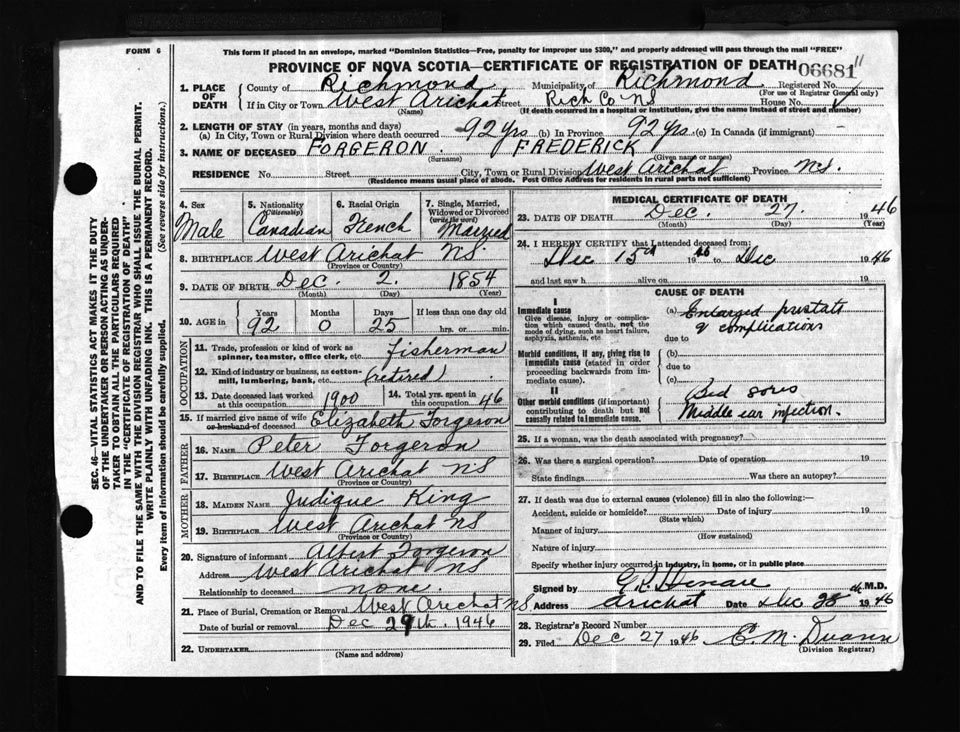 FORM 6
This form if placed in an envelope, marked "Dominion Statistics—Free, penalty for improper use $300," and properly addressed will pass through the mail "FREE"
PROVINCE OF NOVA SCOTIA—CERTIFICATE OF REGISTRATION OF DEATH 06681
1. PLACE OF DEATH County of Richmond Municipality of Richmond Registered No.
(For use of Registrar General only)
If in City or Town West Arichat Street Rich Co NS House No.
(Name) (If death occurred in a hospital or institution, give the name instead of street and number)
2. LENGTH OF STAY (in years, months and days)
(a) In City, Town or Rural Division where death occurred 92 yrs (b) In Province 92 yrs. (c) In Canada (if immigrant)
3. NAME OF DECEASED FORGERON FREDERICK
(Surname) (Given name or names)
RESIDENCE No. Street City, Town or Rural Division West Arichat Province NS.
(Residence means usual place of abode. Post Office Address for residents in rural parts not sufficient)
4. Sex Male
5. Nationality (Citizenship) Canadian
6. Racial Origin French
7. Single, Married, Widowed or Divorced (write the word) Married
8. BIRTHPLACE West Arichat NS
(Province or Country)
9. DATE OF BIRTH Dec. 2. 1854
(Month) (Day) (Year)
10. AGE in Years 92 Months 0 Days 25 If less than one day old hrs. or min.
OCCUPATION
11. Trade, profession or kind of work as spinner, teamster, office clerk, etc. fisherman
12. Kind of industry or business, as cotton-mill, lumbering, bank, etc. (retired)
13. Date deceased last worked at this occupation 1900 14. Total yrs. spent in this occupation 46
15. If married give name of wife or husband of deceased Elizabeth Forgeron
FATHER
16. NAME Peter Forgeron
17. BIRTHPLACE West Arichat NS
(Province or Country)
MOTHER
18. MAIDEN NAME Judique King
19. BIRTHPLACE West Arichat NS
(Province or Country)
20. Signature of informant Albert Forgeron
Address West Arichat NS
Relationship to deceased none.
21. Place of Burial, Cremation or Removal West Arichat NS
Date of burial or removal Dec 29th. 1946
22. UNDERTAKER
(Name and address)
MEDICAL CERTIFICATE OF DEATH
23. DATE OF DEATH Dec. 27. 1946
(Month) (Day) (Year)
24. I HEREBY CERTIFY that I attended deceased from:
Dec 15th 1946 to Dec 1946
and last saw h alive on 19
CAUSE OF DEATH
I
Immediate cause
Give disease, injury or complication which caused death, not the mode of dying, such as heart failure, asphyxia, asthenia, etc
(a) Enlarged prostate & complications
due to
Morbid conditions, if any, giving rise to immediate cause (stated in order proceeding backwards from immediate cause).
(b)
due to
(c)
II
Other morbid conditions (if important) contributing to death but not causally related to immediate cause.
Bed sores
Middle ear infection.
25. If a woman, was the death associated with pregnancy?
26. Was there a surgical operation? Date of operation 19
State findings Was there an autopsy?
27. If death was due to external causes (violence) fill in also the following:
Accident, suicide or homicide? Date of injury 19
(State which)
Manner of injury
(How sustained)
Nature of injury
Specify whether injury occurred in industry, in home, or in public place
Signed by M.D.
Address Arichat Date Dec 28th 1946
28. Registrar's Record Number
29. Filed Dec 27 1946 E. M.
(Division Registrar)
SEC. 46—VITAL STATISTICS ACT MAKES IT THE DUTY
OF THE UNDERTAKER OR PERSON ACTING AS UNDER-
TAKER TO OBTAIN ALL THE PARTICULARS REQUIRED
IN THE "CERTIFICATE OF REGISTRATION OF DEATH"
AND TO FILE THE SAME WITH THE DIVISION REGISTRAR WHO SHALL ISSUE THE BURIAL PERMIT.
WRITE PLAINLY WITH UNFADING INK. THIS IS A PERMANENT RECORD.
Every item of information should be carefully supplied. (See reverse side for instructions.)